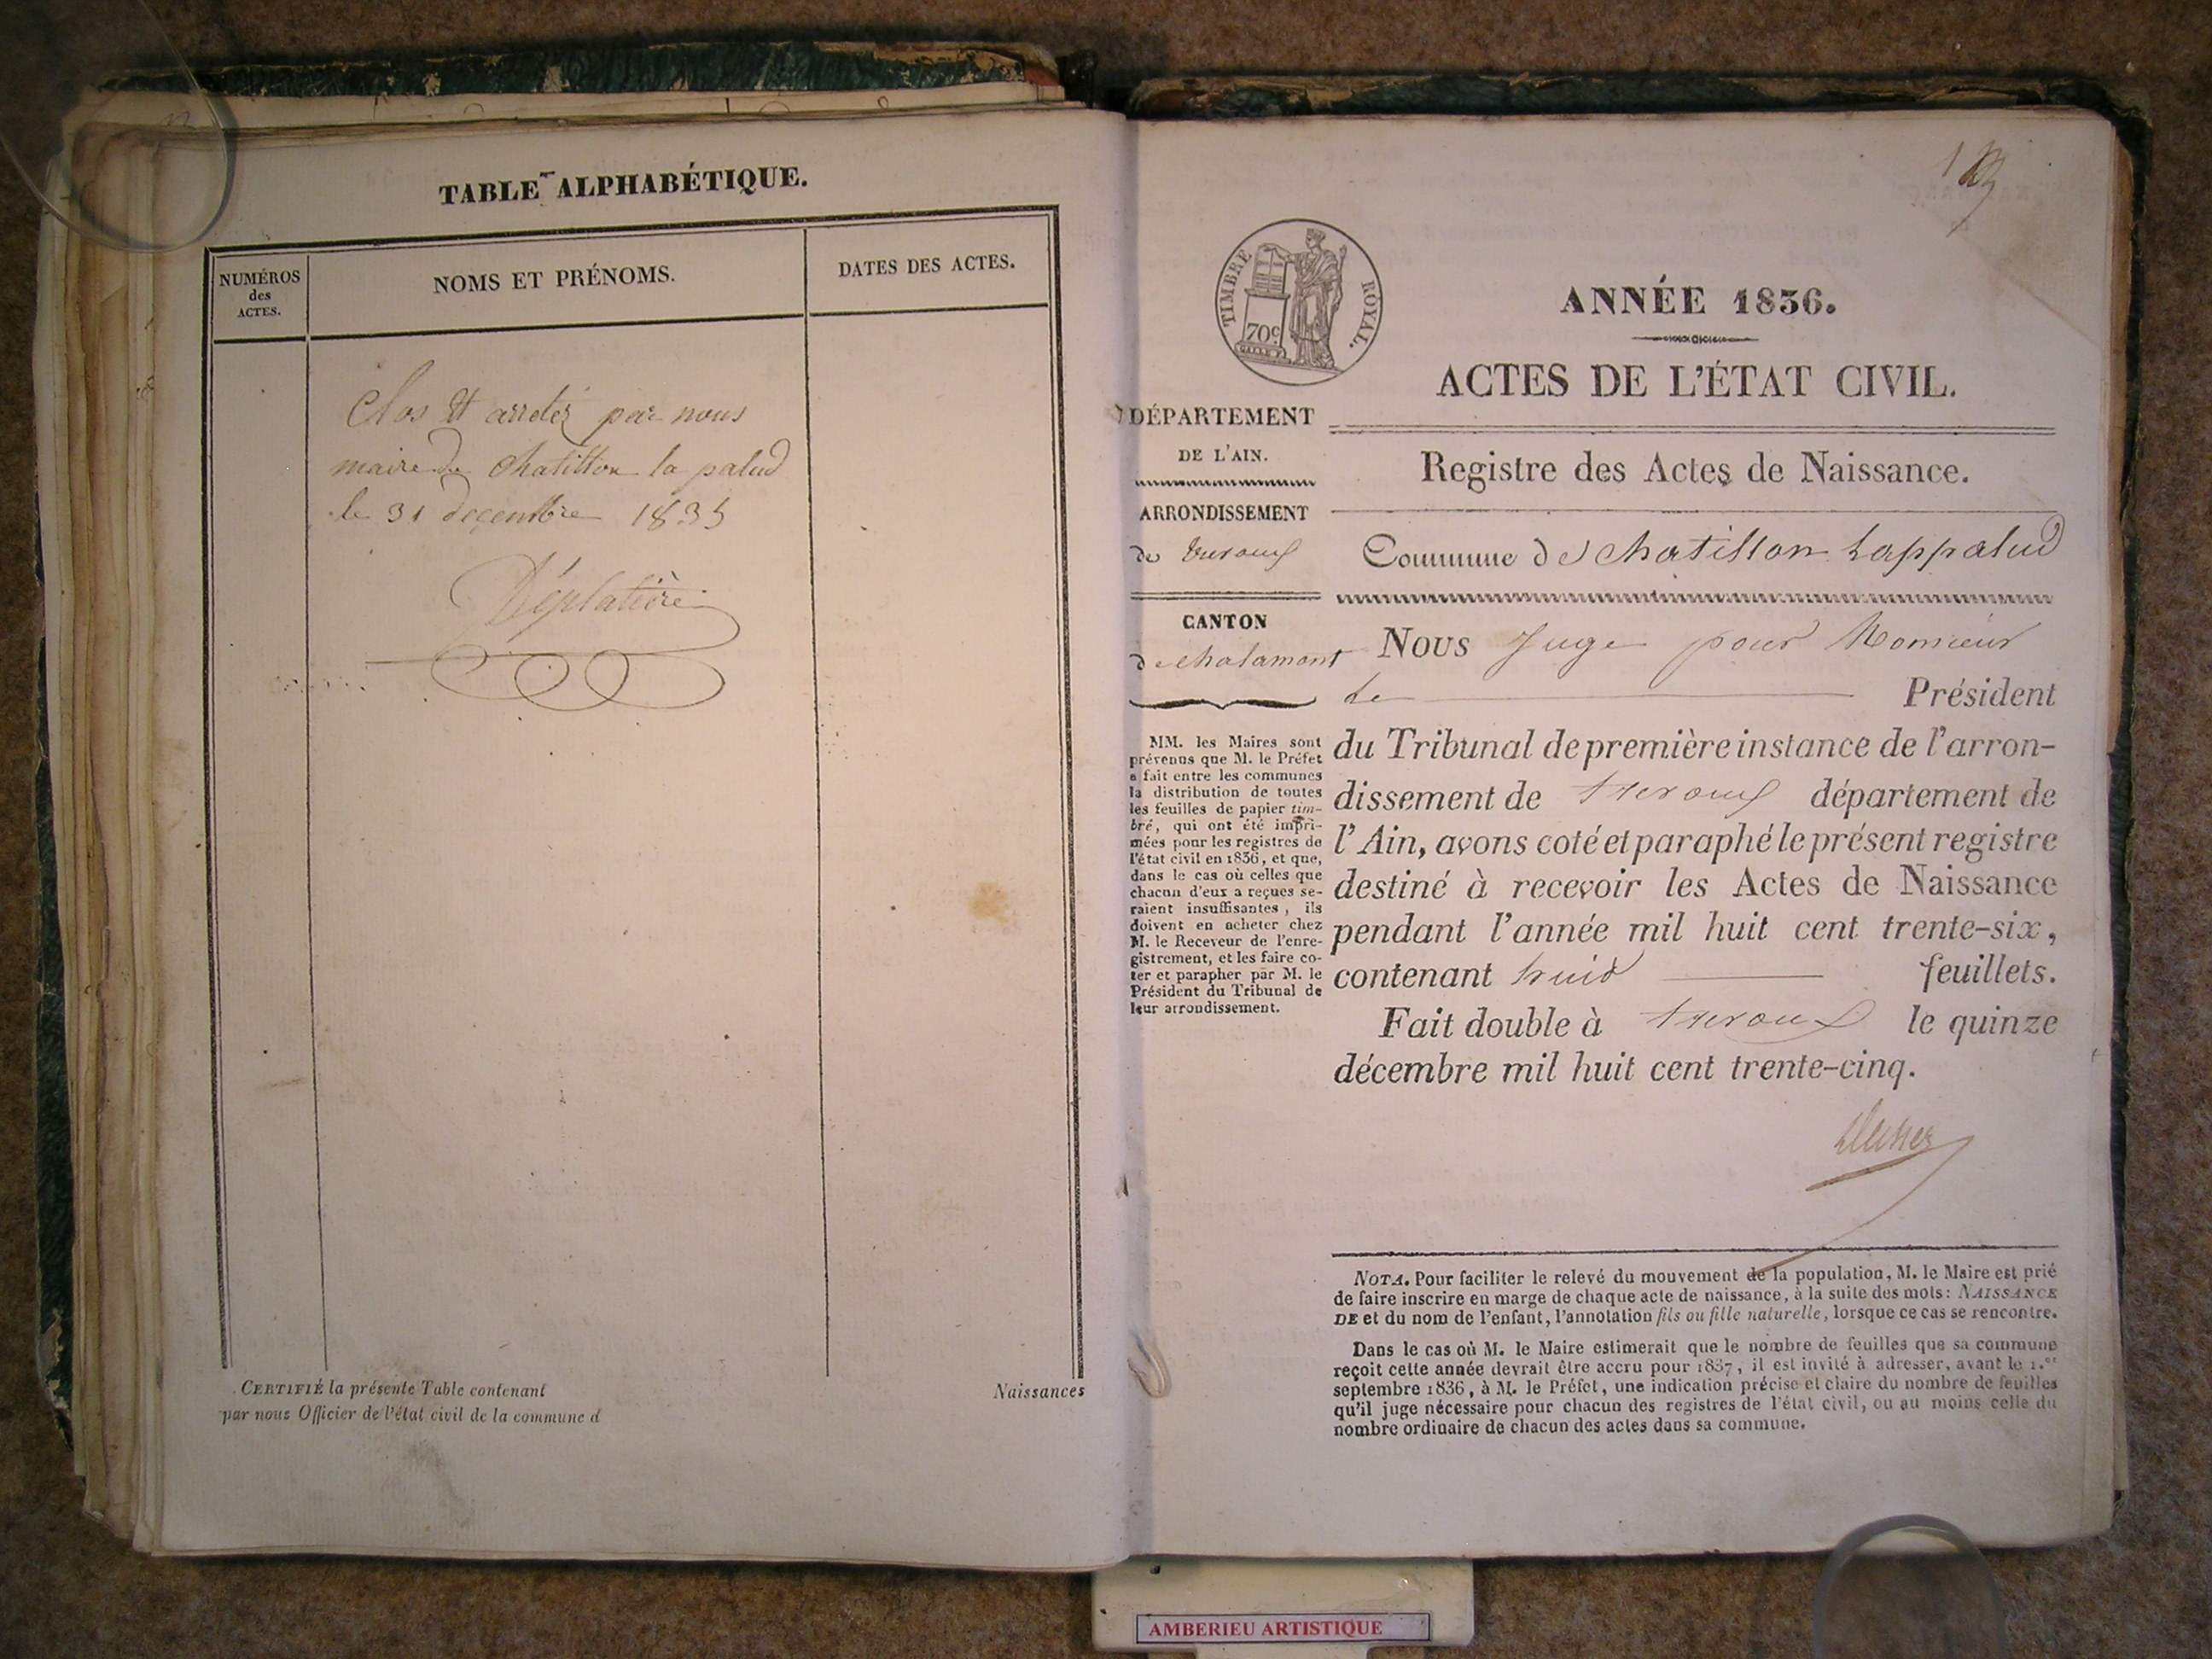 TABLE ALPHABÉTIQUE.
NUMÉROS
des
ACTES.
NOMS ET PRÉNOMS.
DATES DES ACTES.
Clos et arretéz par nous
maire de chatillon la palud
le 31 decembre 1835
Déplatière
CERTIFIÉ la présente Table contenant
Naissances
par nous Officier de l'état civil de la commune d
TIMBRE ROYAL.
70c
ANNÉE 1836.
ACTES DE L'ÉTAT CIVIL.
DÉPARTEMENT
DE L'AIN.
ARRONDISSEMENT
de
CANTON
de chalamont
MM. les Maires sont
prévenus que M. le Préfet
a fait entre les communes
la distribution de toutes
les feuilles de papier tim-
bré, qui ont été impri-
mées pour les registres de
l'état civil en 1836, et que,
dans le cas où celles que
chacun d'eux a reçues se-
raient insuffisantes, ils
doivent en acheter chez
M. le Receveur de l'enre-
gistrement, et les faire co-
ter et parapher par M. le
Président du Tribunal de
leur arrondissement.
Registre des Actes de Naissance.
Commune de chatillon Lappalud
Nous Juge pour Monsieur
Le Président
du Tribunal de première instance de l'arron-
dissement de département de
l'Ain, avons coté et paraphé le présent registre
destiné à recevoir les Actes de Naissance
pendant l'année mil huit cent trente-six,
contenant huit feuillets.
Fait double à le quinze
décembre mil huit cent trente-cinq.
NOTA. Pour faciliter le relevé du mouvement de la population, M. le Maire est prié
de faire inscrire en marge de chaque acte de naissance, à la suite des mots: NAISSANCE
DE et du nom de l'enfant, l'annotation fils ou fille naturelle, lorsque ce cas se rencontre.
Dans le cas où M. le Maire estimerait que le nombre de feuilles que sa commune
reçoit cette année devrait être accru pour 1837, il est invité à adresser, avant le 1.er
septembre 1836, à M. le Préfet, une indication précise et claire du nombre de feuilles
qu'il juge nécessaire pour chacun des registres de l'état civil, ou au moins celle du
nombre ordinaire de chacun des actes dans sa commune.
AMBERIEU ARTISTIQUE